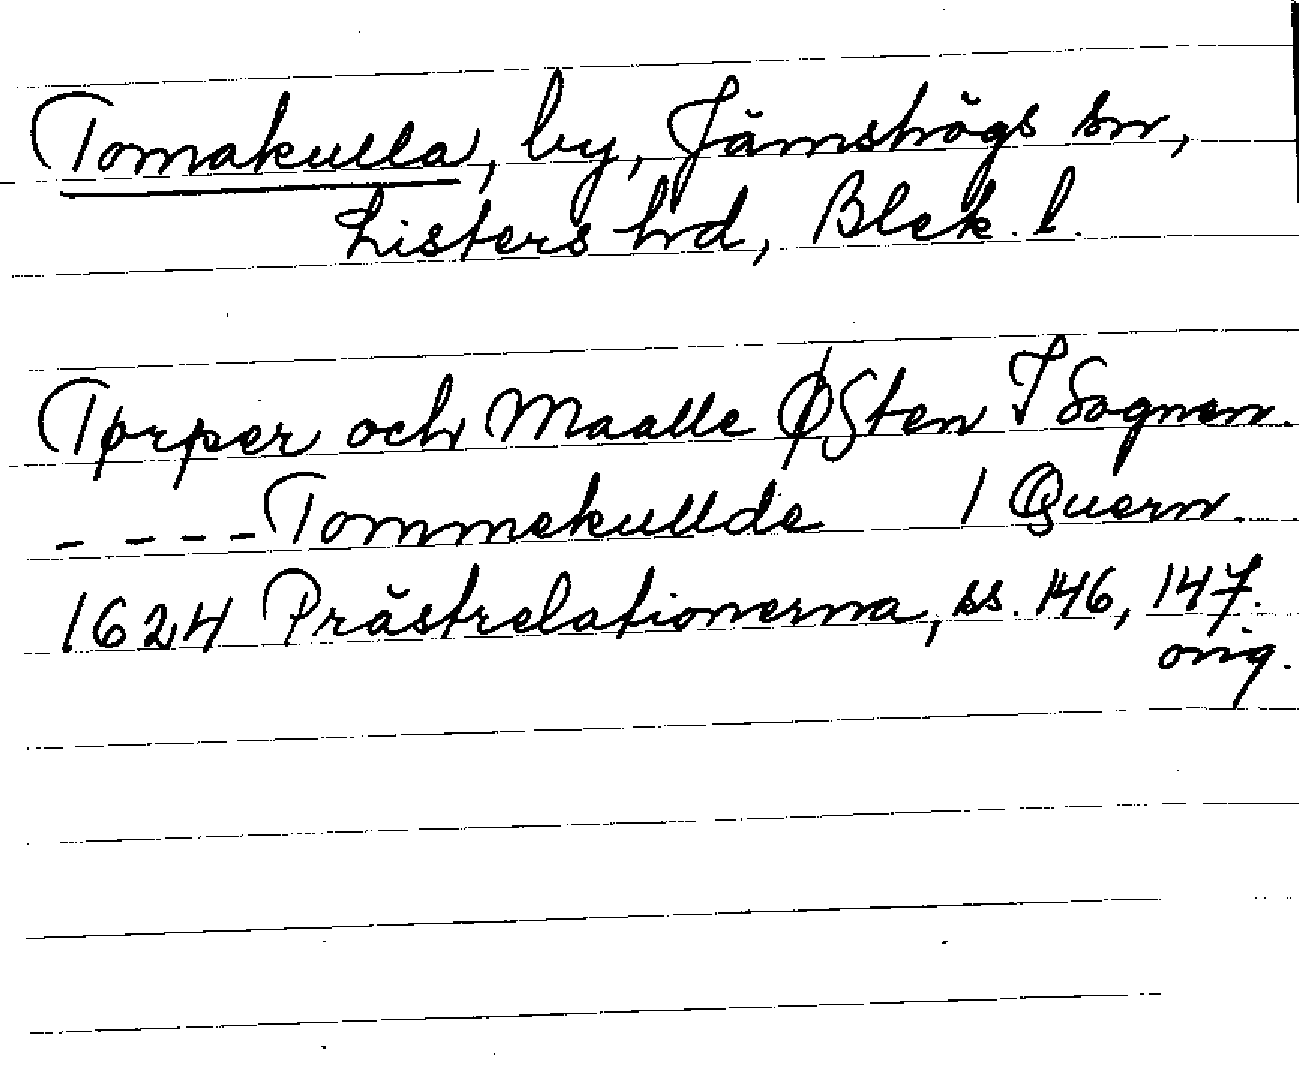 Tomakulla, by, Jämshögs sn,
Listers hd, Blek. l.
Tørper och Maalle Østen I Sognen.
- - - - Tommekullde 1 Quern.
1624 Prästrelationerna, ss. 146, 147.
orig.